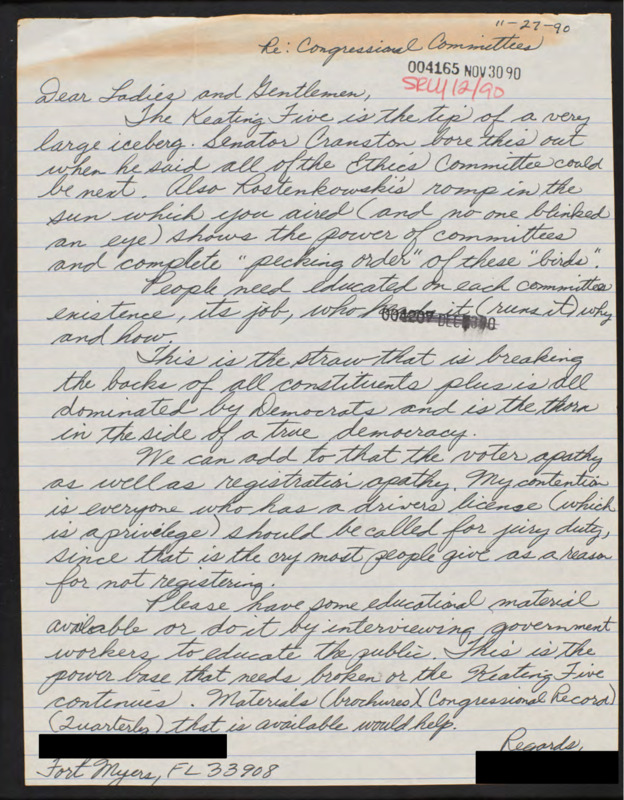 11-27-90
Re: Congressional Committees
004165 NOV 30 90
SRW 12/90
Dear Ladies and Gentlemen,
The Keating Five is the tip of a very
large iceberg. Senator Cranston bore this out
when he said all of the Ethics Committee could
be next. Also Rostenkowski's romp in the
sun which you aired (and no one blinked
an eye) shows the power of committees
and complete "pecking order" of these "birds".
People need educated on each committee
existence, its job, who it (runs it) why
004207 DEC
and how.
This is the straw that is breaking
the backs of all constituents plus is all
dominated by Democrats and is the thorn
in the side of a true democracy.
We can add to that the voter apathy
as well as registration apathy. My contention
is everyone who has a drivers license (which
is a privelege) should be called for jury duty,
since that is the cry most people give as a reason
for not registering.
Please have some educational material
available or do it by interviewing government
workers to educate the public. This is the
power base that needs broken or the Keating Five
continues. Materials (brochures)(Congressional Record)
(Quarterly) that is available would help.
Regards,
Fort Myers, FL 33908